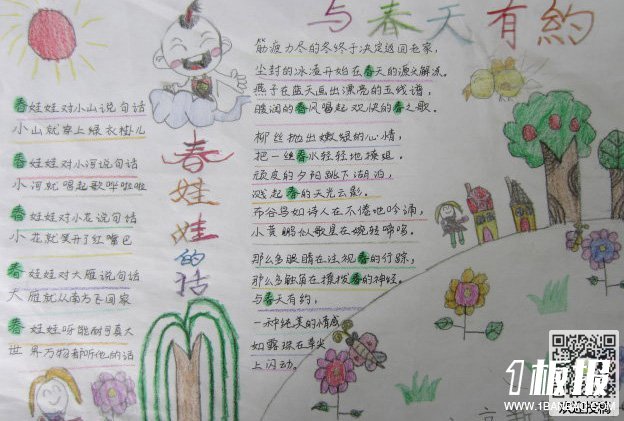 与春天有約
春娃娃的话
春娃娃对小山说句话
小山就穿上绿衣褂儿
春娃娃对小河说句话
小河就唱起歌哗啦啦
春娃娃对小花说句话
小花就笑开了红嘴巴
春娃娃对大雁说句话
大雁就从南方飞回家
春娃娃呀能耐可真大
世界万物都听他的话
筋疲力尽的冬终于决定返回老家，
尘封的冰凌开始在春天的源头解冻。
燕子在蓝天画出漂亮的五线谱，
暖润的春风唱起欢快的春之歌。
柳丝抛出嫩绿的心情，
把一丝春水轻轻地撩姐。
顽皮的夕阳跳下湖泊，
溅起春的天光云影。
布谷鸟如诗人在不倦地吟诵，
小黄鹂似歌星在婉转啼鸣。
那么多眼睛在注视春的行踪，
那么多触角在撩拨春的神经。
与春天有约，
一种纯美的情感
如露珠在草尖
上闪动。
1板报
WWW.1BANBAO.COM
欢迎投稿